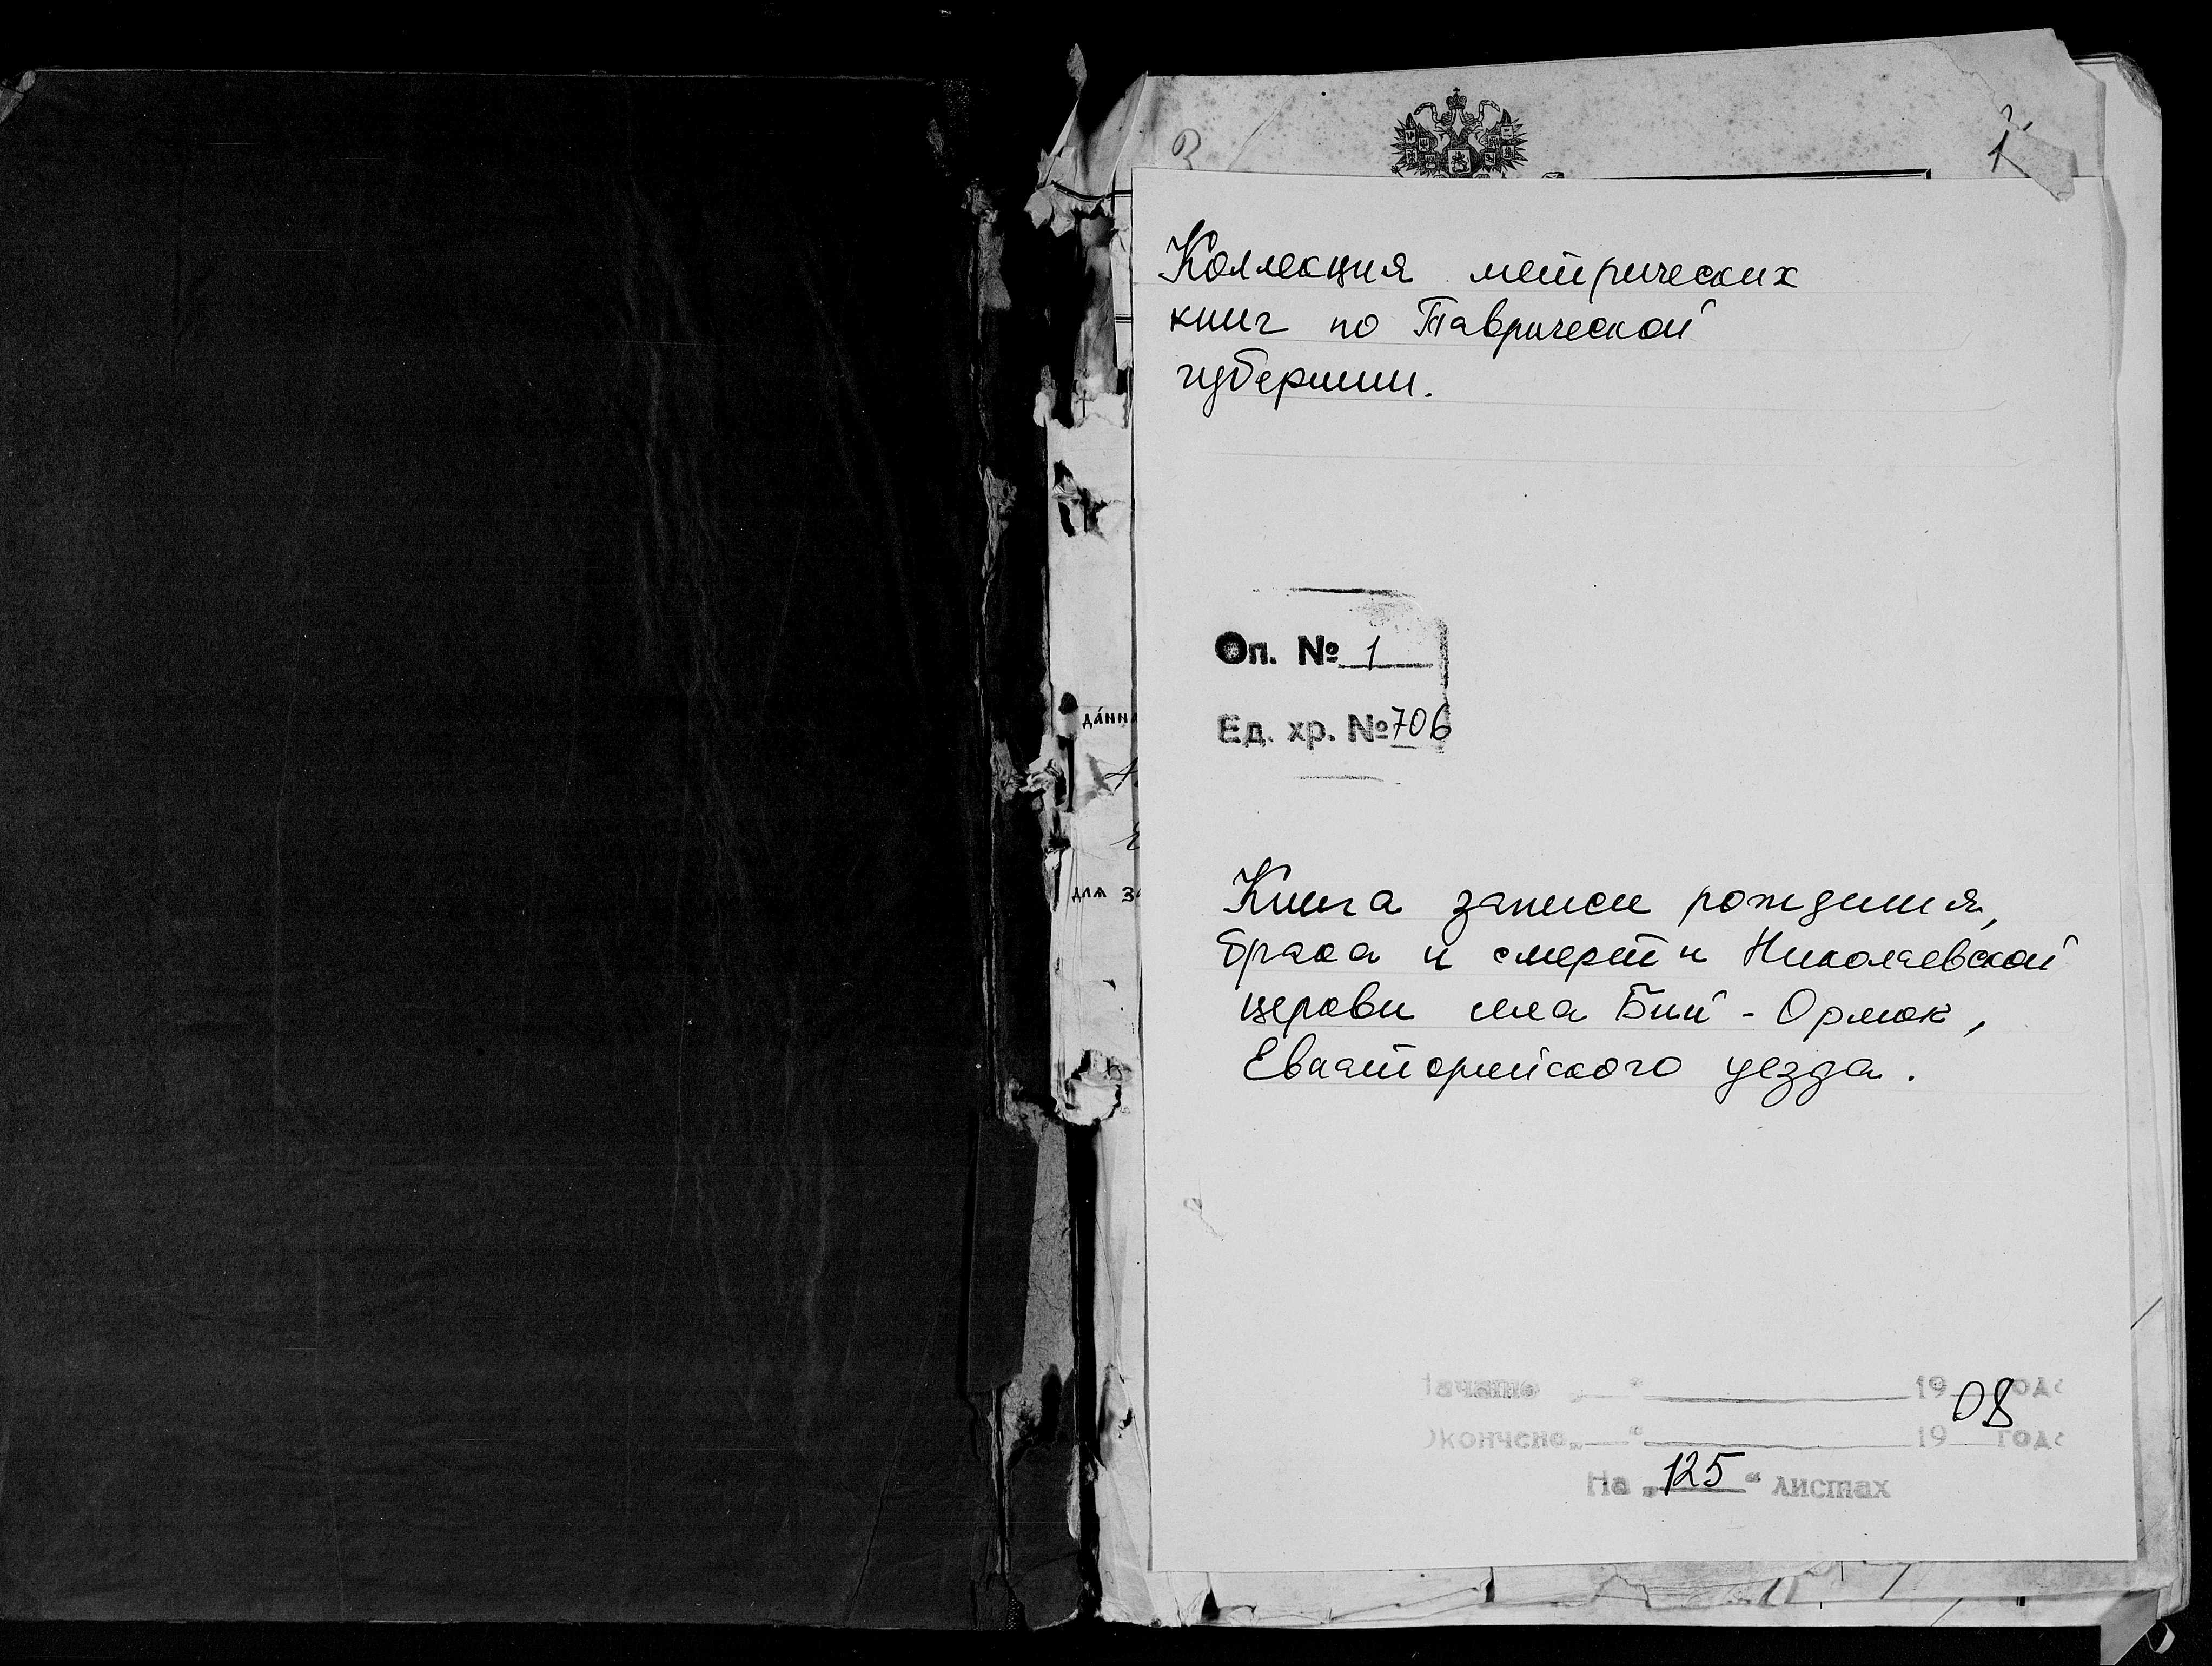 1
Коллекция метрических
книг по Таврической
губернии.
Оп. № 1
Ед. хр. № 706
данна
для
Книга записи рождения,
брака и смерти Николаевской
церкви села Бий-Орлюк,
Евпаторийского уезда.
Начато „ “ 19 08 года
Окончено „ “ 19 года
На „125“ листах